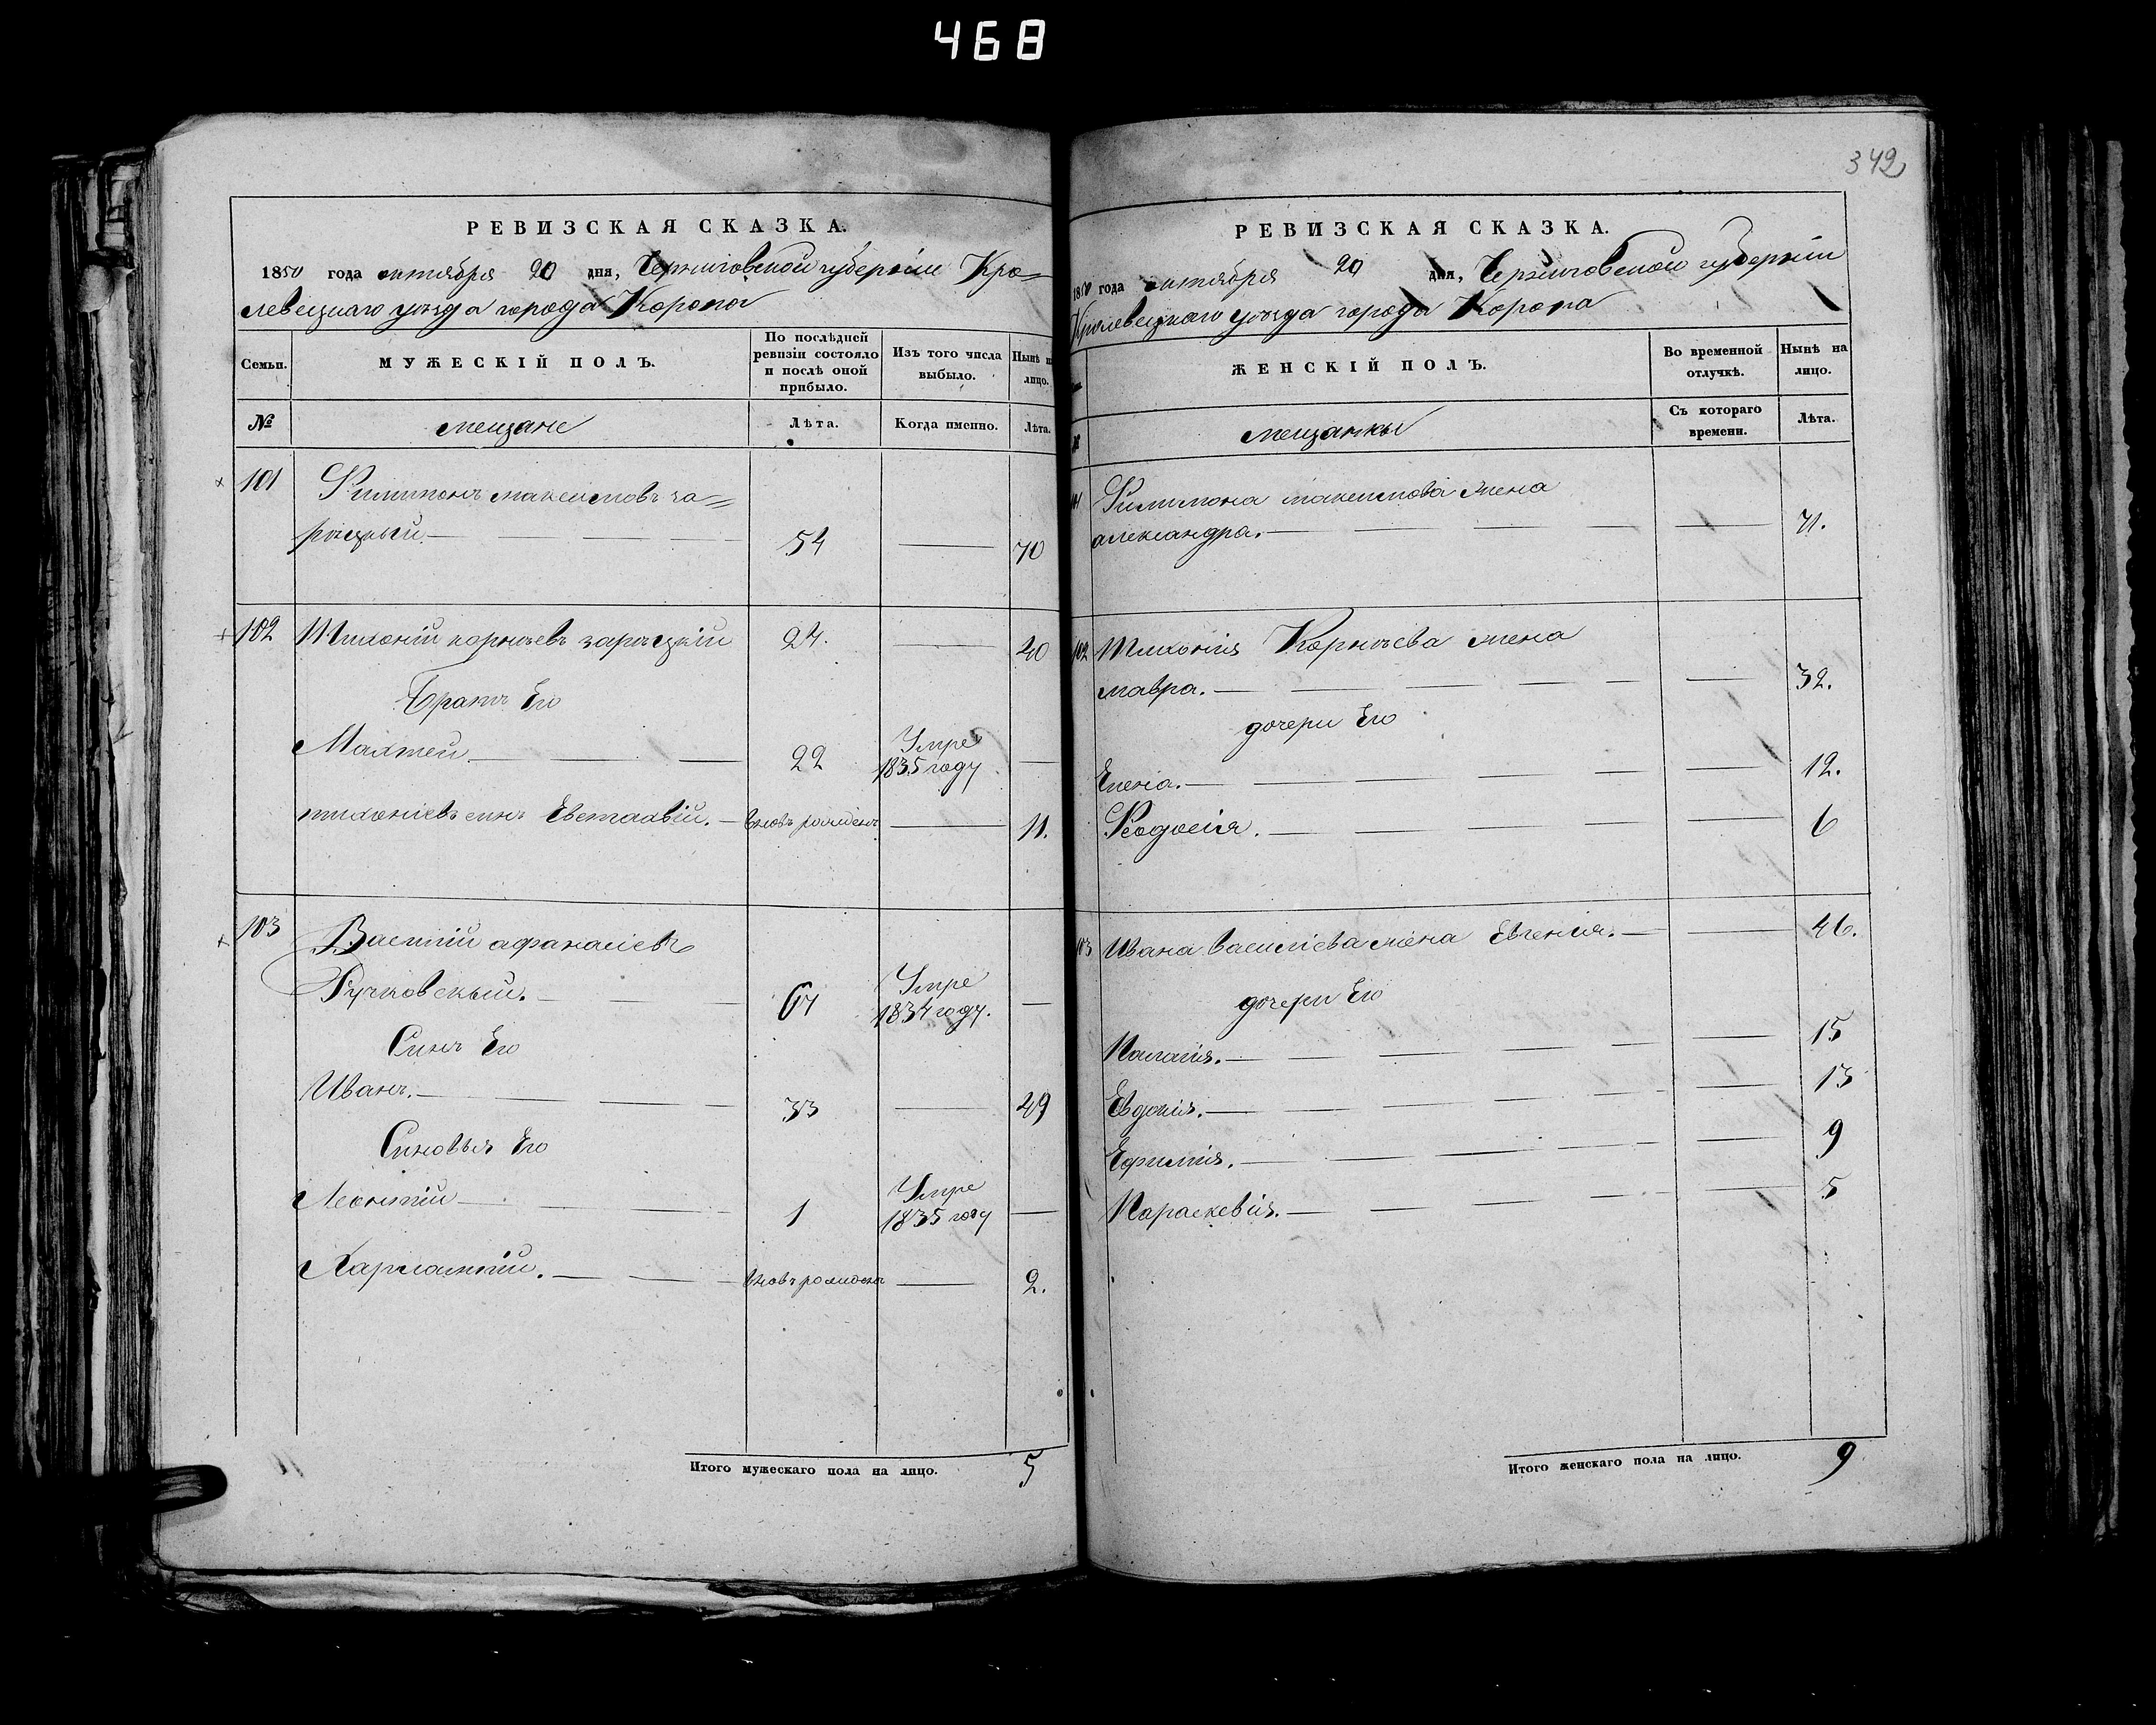 468
342
РЕВИЗСКАЯ СКАЗКА.
1850 года октября 20 дня, Черниговской губернии Кро=
левецкаго уезда города Коропа
Семьи. МУЖЕСКІЙ ПОЛЪ. По послѣдней ревизіи состояло и послѣ оной прибыло. Изъ того числа выбыло. Нынѣ на лицо.
№ мещане Лѣта. Когда именно. Лѣта.
101 Филимонъ максимовъ за=
рецкый. 54 70
102 Тихоній корнѣевъ зарѣцкій 24. 40
Братъ Его
Матѳей 22 Умре 1835 году
тихоніевъ синъ Евстафій. вновь рожденъ 11.
103 Василій афанасіевъ
Ручковскый. 67 Умре 1834 году.
Синъ Его
Иванъ. 33 49
Синовья Его
Леонтій 1 Умре 1835 году
Харлампій. вновь рожденъ 2.
Итого мужескаго пола на лицо. 5
РЕВИЗСКАЯ СКАЗКА.
1850 года октября 20 дня, Черниговской губерніи
Кролевецкаго уезда города Коропа
ЖЕНСКІЙ ПОЛЪ. Во временной отлучкѣ. Нынѣ на лицо.
мещанкы Съ котораго времени. Лѣта.
Филимона максимова жена
александра. 71.
102 Тихонія Корнѣева жена
мавра. 32.
дочери Его
Елена. 12.
Феодосія. 6
103 Ивана василіева жена Евгенія. 46.
дочери Его
Палагія. 15
Евдокія. 13
Ефимія. 9
Параскевія. 5
Итого женскаго пола на лицо. 9